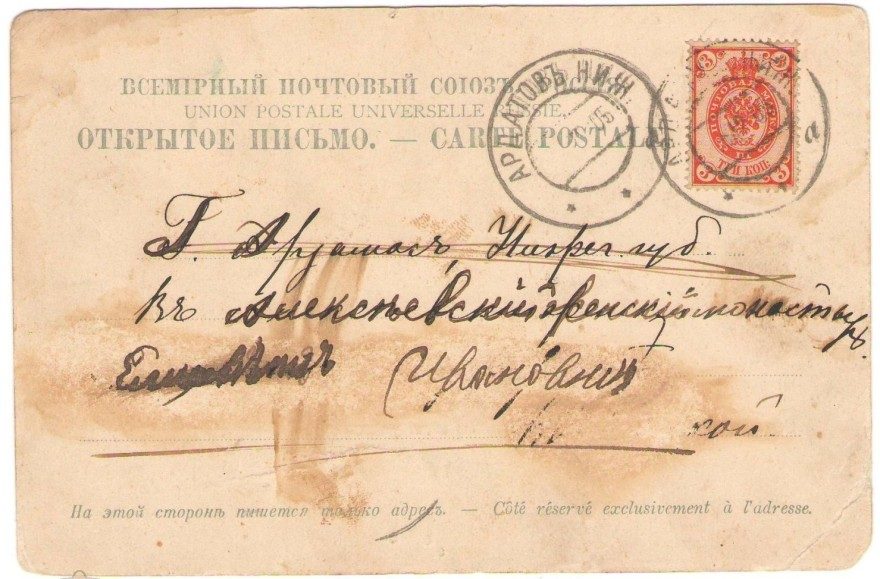 ВСЕМІРНЫЙ ПОЧТОВЫЙ СОЮЗЪ. РОССІЯ.
UNION POSTALE UNIVERSELLE. RUSSIE.
ОТКРЫТОЕ ПИСЬМО. — CARTE POSTALE
АРДАТОВЪ НИЖ.
05
а
3 3
ПОЧТОВАЯ МАРКА
3 ТРИ КОП. 3
Г. Арзамасъ, Нижег. губ.
въ Алексѣевскій женскій монастырь
Ивановнѣ
кой
На этой сторонѣ пишется только адресъ. — Côté réservé exclusivement à l'adresse.